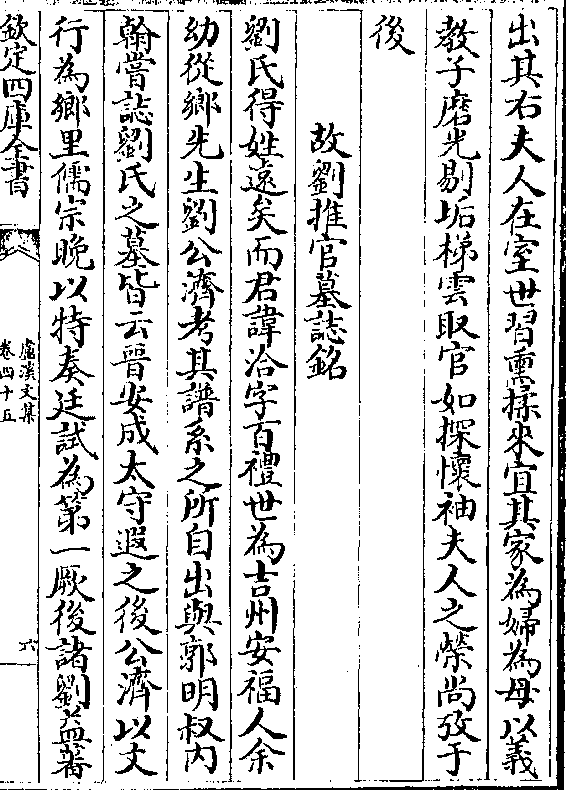 出其右夫人在室世習熏揉來宜其家為婦為母以義
教子磨光剔垢梯雲取官如探懷袖夫人之榮尚攷于
後
故劉推官墓誌銘
劉氏得姓遠矣而君諱洽字百禮世為吉州安福人余
幼從鄉先生劉公濟考其譜系之所自出與郭明叔内
翰嘗誌劉氏之墓皆云晉安成太守遐之後公濟以文
行為鄉里儒宗晚以特奏廷試為第一厥後諸劉益蕃
欽定四庫全書
盧溪文集
卷四十五
六